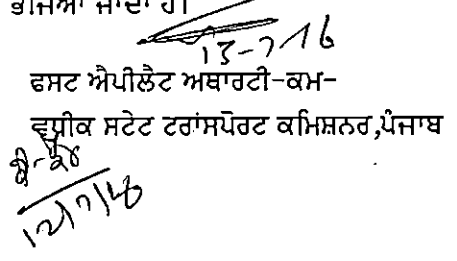 ਭੇਜਿਆ ਜਾਂਦਾ ਹੈ।
13-7-16
ਫਸਟ ਐਪੀਲੈਟ ਅਥਾਰਟੀ-ਕਮ-
ਵਧੀਕ ਸਟੇਟ ਟਰਾਂਸਪੋਰਟ ਕਮਿਸ਼ਨਰ,ਪੰਜਾਬ
12/7/16